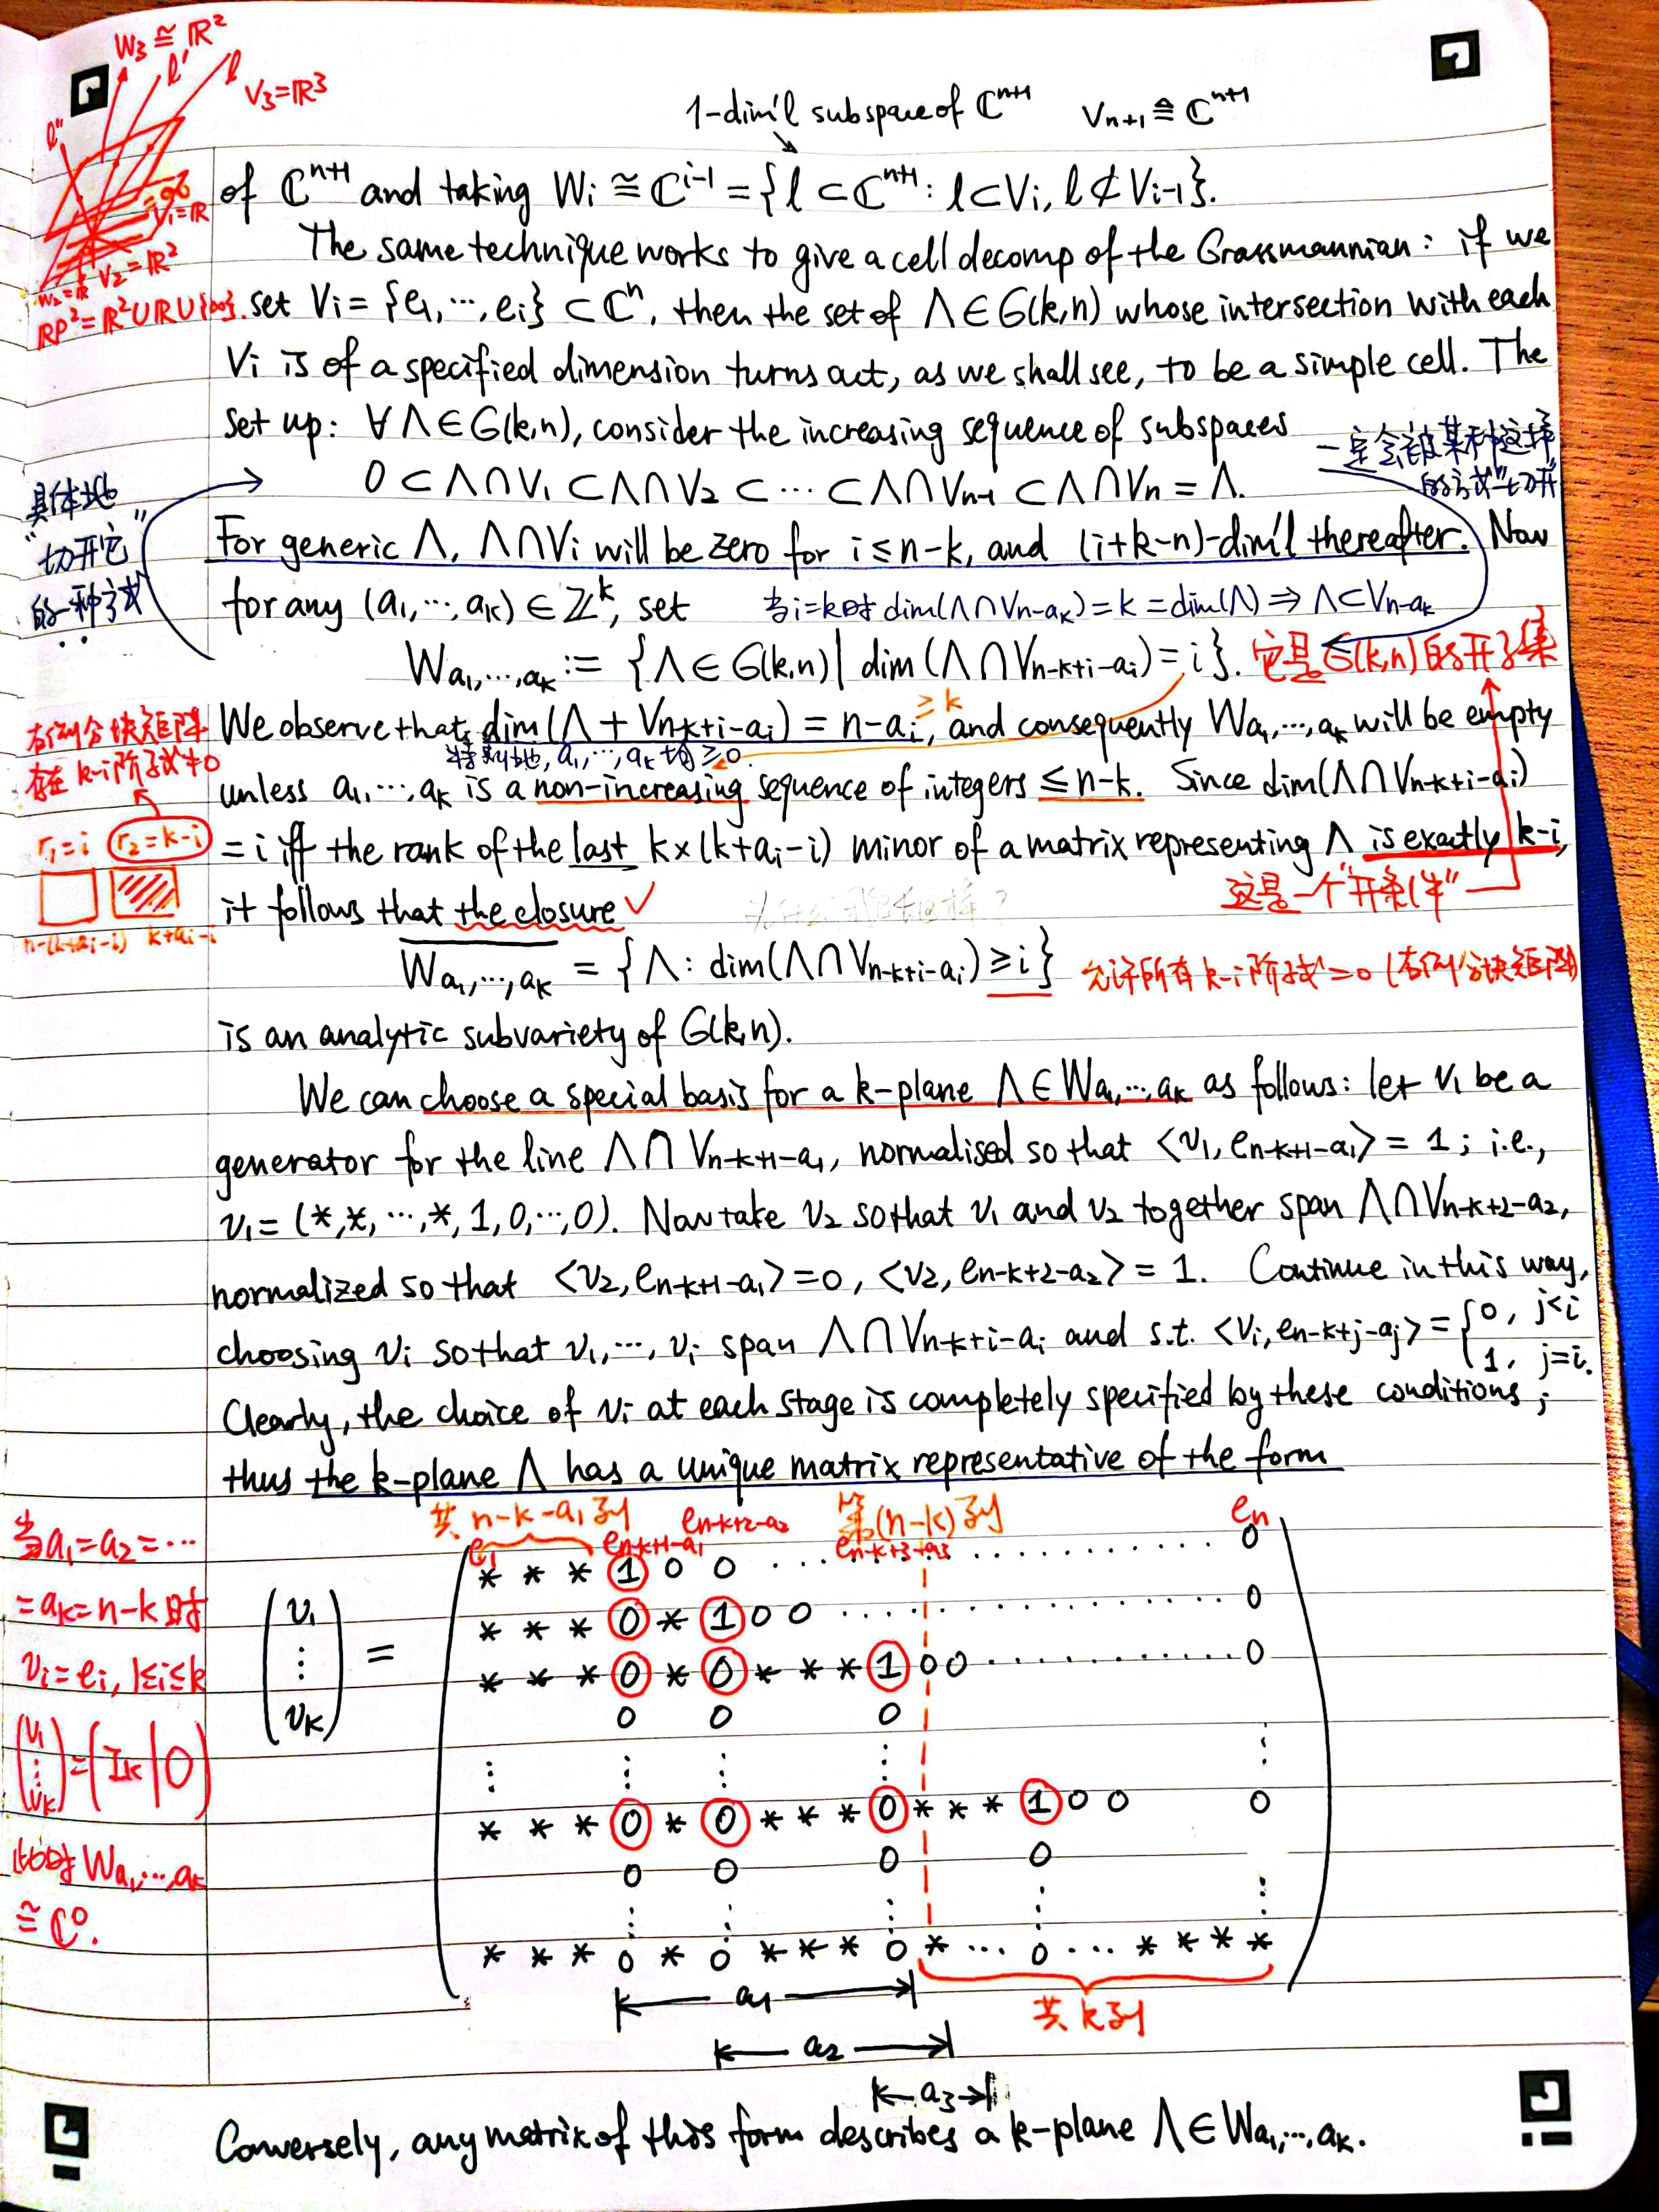 W₃ ≅ ℝ²
l'
l
V₃=ℝ³
l''
V₁=ℝ
V₂=ℝ²
W₂=ℝ
ℝP²=ℝ²∪ℝ∪{∞}.
1-dim'l subspace of ℂⁿ⁺¹ Vₙ₊₁ ≙ ℂⁿ⁺¹
of ℂⁿ⁺¹ and taking Wᵢ ≅ ℂⁱ⁻¹ = {l ⊂ ℂⁿ⁺¹: l⊂Vᵢ, l⊄Vᵢ₋₁}.
The same technique works to give a cell decomp of the Grassmannian: if we
set Vᵢ = {e₁, ⋯, eᵢ} ⊂ ℂⁿ, then the set of Λ∈G(k,n) whose intersection with each
Vᵢ is of a specified dimension turns out, as we shall see, to be a simple cell. The
set up: ∀Λ∈G(k,n), consider the increasing sequence of subspaces
一定会被某种这样的方式"切开"
0 ⊂ Λ∩V₁ ⊂ Λ∩V₂ ⊂ ⋯ ⊂ Λ∩Vₙ₋₁ ⊂ Λ∩Vₙ = Λ.
具体地
"切开它"
的一种方式
For generic Λ, Λ∩Vᵢ will be zero for i≤n-k, and (i+k-n)-dim'l thereafter. Now
for any (a₁, ⋯, aₖ) ∈ ℤᵏ, set 当i=k时 dim(Λ∩V_{n-aₖ}) = k = dim(Λ) ⇒ Λ⊂V_{n-aₖ}
W_{a₁,⋯,aₖ} := {Λ∈G(k,n) | dim(Λ∩V_{n-k+i-aᵢ}) = i}. 它是G(k,n)的开子集
We observe that dim(Λ + V_{n-k+i-aᵢ}) = n-aᵢ, ≥k and consequently W_{a₁,⋯,aₖ} will be empty
特别地, a₁, ⋯, aₖ 均 ≥0
unless a₁, ⋯, aₖ is a non-increasing sequence of integers ≤n-k. Since dim(Λ∩V_{n-k+i-aᵢ})
= i iff the rank of the last k×(k+aᵢ-i) minor of a matrix representing Λ is exactly k-i,
这是一个"开条件"
it follows that the closure ✓
右侧分块矩阵
存在k-i阶子式≠0
r₁=i r₂=k-i
n-(k+aᵢ-i) k+aᵢ-i
W̅_{a₁,⋯,aₖ} = {Λ: dim(Λ∩V_{n-k+i-aᵢ}) ≥ i} 允许所有k-i阶子式=0 (右侧分块矩阵)
is an analytic subvariety of G(k,n).
We can choose a special basis for a k-plane Λ∈W_{a₁,⋯,aₖ} as follows: let v₁ be a
generator for the line Λ∩V_{n-k+1-a₁}, normalised so that <v₁, e_{n-k+1-a₁}> = 1; i.e.,
v₁ = (*,*, ⋯, *, 1, 0, ⋯, 0). Now take v₂ so that v₁ and v₂ together span Λ∩V_{n-k+2-a₂},
normalized so that <v₂, e_{n-k+1-a₁}> = 0, <v₂, e_{n-k+2-a₂}> = 1. Continue in this way,
choosing vᵢ so that v₁, ⋯, vᵢ span Λ∩V_{n-k+i-aᵢ} and s.t. <vᵢ, e_{n-k+j-aⱼ}> = {0, j<i
1, j=i.
Clearly, the choice of vᵢ at each stage is completely specified by these conditions;
thus the k-plane Λ has a unique matrix representative of the form
当a₁=a₂=⋯
=aₖ=n-k时
vᵢ=eᵢ, 1≤i≤k
(v₁ ⋮ vₖ) = (Iₖ | 0)
此时 W_{a₁,⋯,aₖ}
≅ ℂ⁰.
共n-k-a₁列 e_{n-k+2-a₂} 第(n-k)列 eₙ
e₁ e_{n-k+1-a₁} e_{n-k+3-a₃}
(v₁ ⋮ vₖ) =
* * * 1 0 0 ⋯ 0
* * * 0 * 1 0 0 ⋯ 0
* * * 0 * 0 * * * 1 0 0 ⋯ 0
0 0 0
⋮ ⋮ ⋮ ⋮ ⋮
* * * 0 * 0 * * * 0 * * * 1 0 0 0
0 0 0 0
⋮ ⋮ ⋮ ⋮ ⋮
* * * 0 * 0 * * * 0 * ⋯ 0 ⋯ * * * *
a₁ 共k列
a₂
a₃
Conversely, any matrix of this form describes a k-plane Λ∈W_{a₁,⋯,aₖ}.